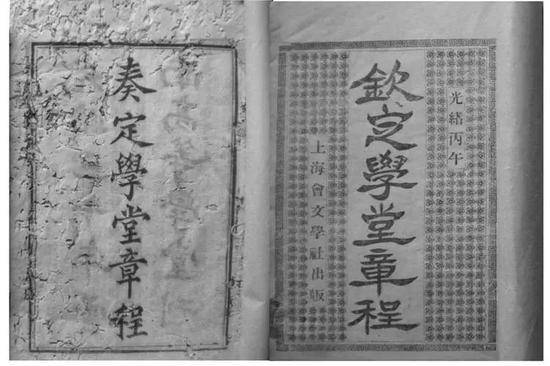 光緒丙午
欽定學堂章程
上海會文學社出版
奏定學堂章程